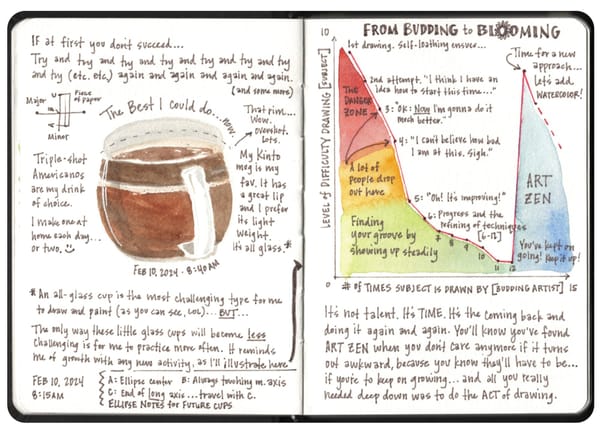 IF at first you don't succeed...
Try and try and try and try and try and try
and try (etc. etc.) again and again and again.
(and some more)
Piece of paper
Major
Minor
The Best I could do... now.
That rim...
Wow.
overshot.
Lots.
Triple-shot
Americanos
are my drink
of choice.
I make one at
home each day...
or two.
My Kinto
mug is my
fav. It has
a great lip
and I prefer
its light
weight.
It's all glass.*
FEB 10, 2024 - 8:40AM
* An all-glass cup is the most challenging type for me
to draw and paint (as you can see, LOL)... BUT...
The only way these little glass cups will become less
challenging is for me to practice more often. It reminds
me of growth with any new activity, as I'll illustrate here
FEB 10, 2024
8:15AM
A: Ellipse center B: Always touching m. axis
C: End of long axis... travel with C.
ELLIPSE NOTES FOR FUTURE CUPS
FROM BUDDING to BLOOMING
10
LEVEL OF DIFFICULTY DRAWING [SUBJECT]
1st drawing. Self-loathing ensues...
2nd attempt. "I think I have an
idea how to start this time..."
3: "OK: Now I'm gonna do it
much better."
4: "I can't believe how bad
I am at this. Sigh."
5: "Oh! It's improving!"
6: Progress and the
refining of techniques
[6-12]
7 8 9 10 11 12
THE
DANGER
ZONE
A lot of
people drop
out here
Finding
your groove by
showing up steadily
Time for a new
approach...
Let's add
WATERCOLOR!
ART
ZEN
You've kept on
going! Keep it up!
0 # OF TIMES SUBJECT IS DRAWN BY [BUDDING ARTIST] 15
It's not talent. It's TIME. It's the coming back and
doing it again and again. You'll know you've found
ART ZEN when you don't care anymore if it turns
out awkward, because you know they'll have to be...
if you're to keep on growing... and all you really
needed deep down was to do the ACT of drawing.